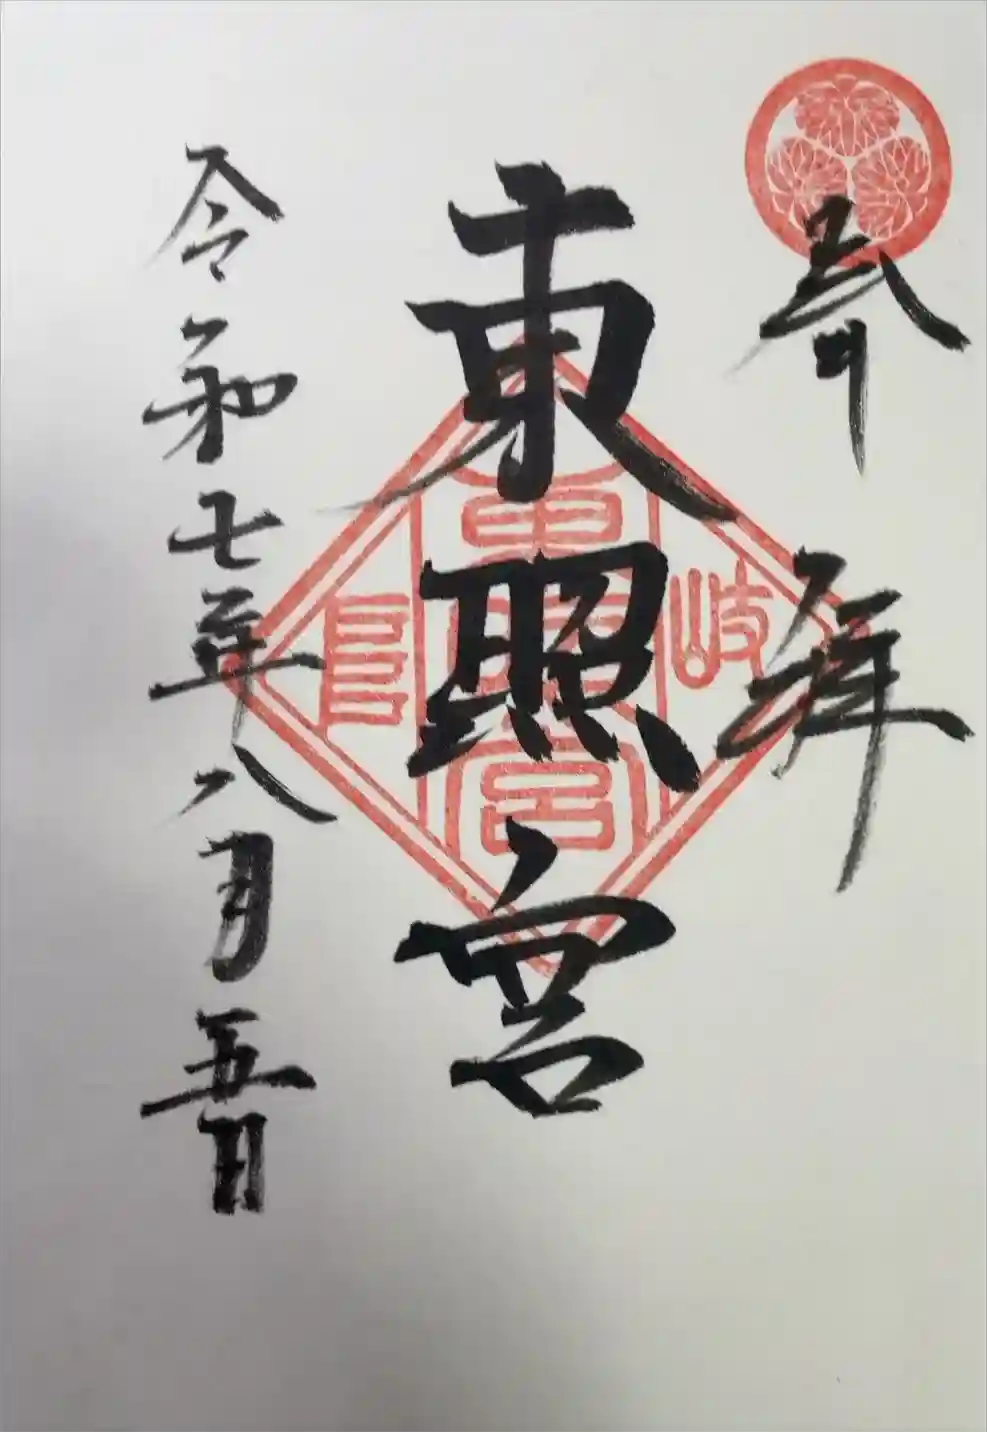 奉拝
東照宮
令和七年八月五日
岐
東照宮